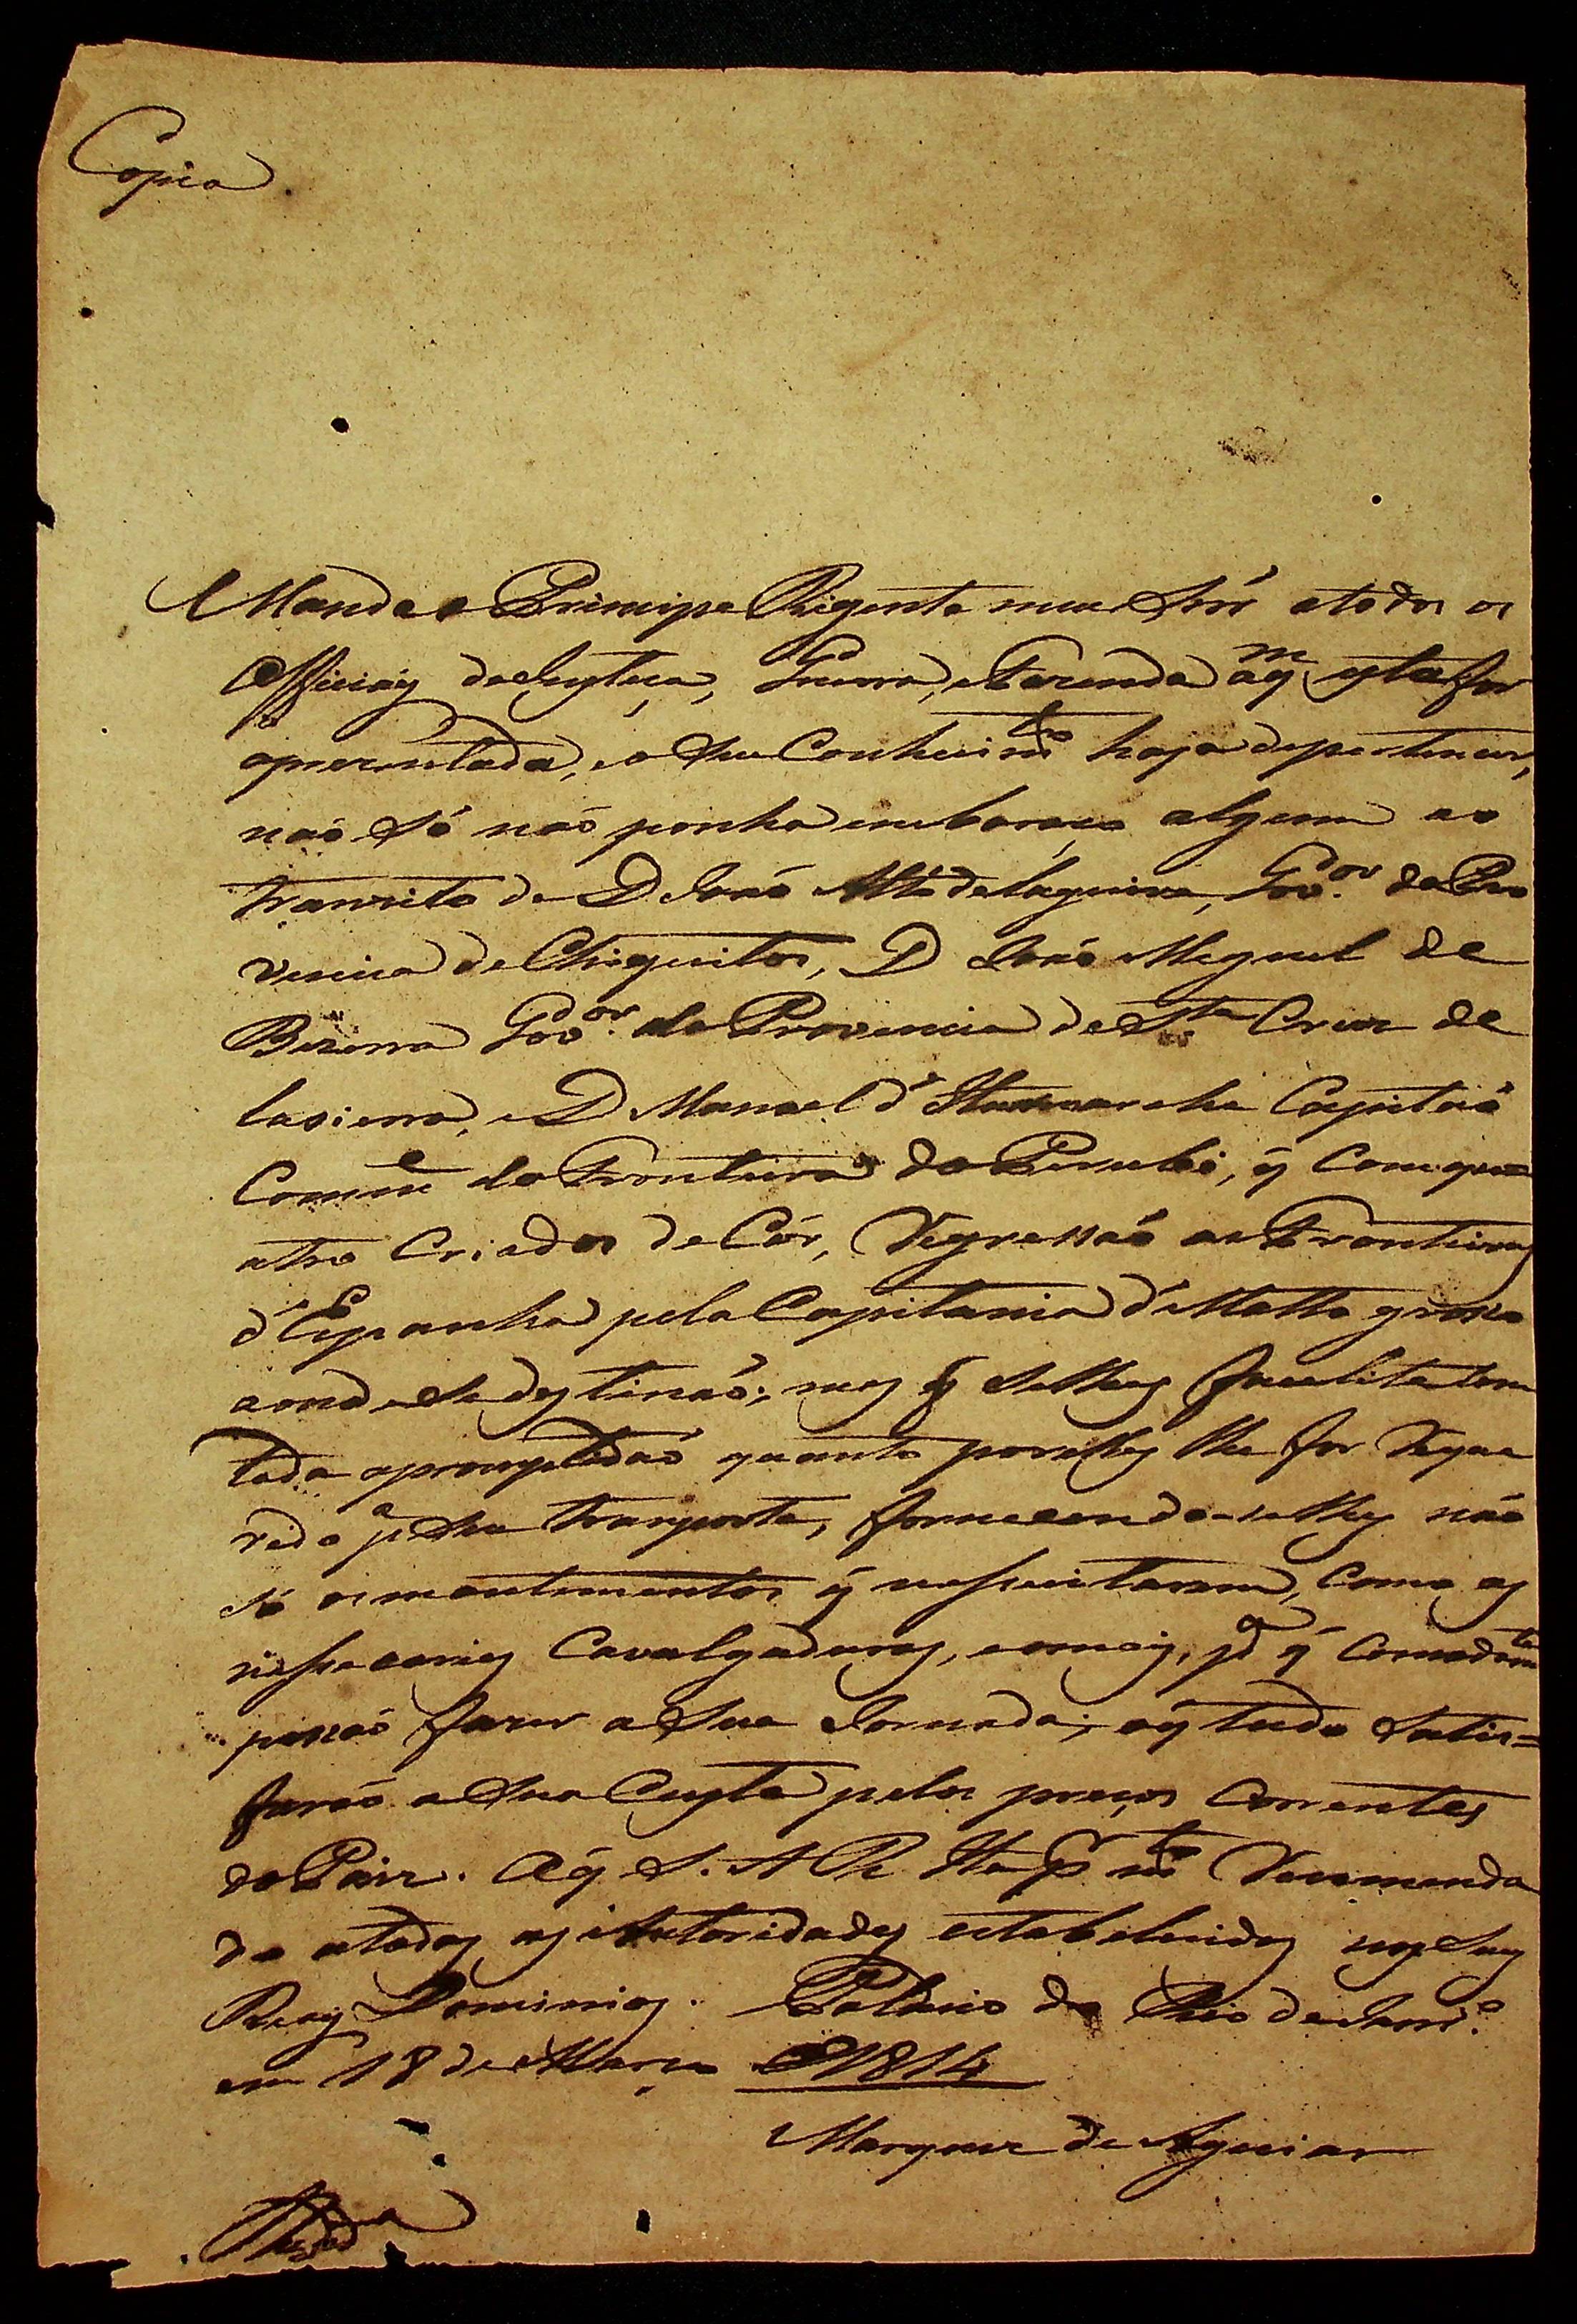 Copia.
Manda o Principe Regente meu Snr̃ atodos os
Officiáes deJustiça, Guerra, eFazenda aq̃ᵐ esta for
aprezentada, eo Seu Conhecimᵗᵒ haja depertencer,
naõ Só naõ ponha embaraço algum ao
tranzito de D. Joaõ delaguiera, Govᵒʳ. da Pro
vincia deChiquitos, D Joaõ Miguel de
Bezerra Govᵒʳ. da Provincia de Sᵗᵃ Cruz de
lasierra, e D Manoel d' Capitaõ
Commᵉ da Fronteira do, q̃ Comqua
atro Criados de Côr, Regressaõ as Fronteiras
d'Espanha pela Capitania d'Matto groso
aonde Sedestinaõ; mas q̃ Selhes facilite Com
toda apromptidaõ quanto porelles lhe for Reque
rido pᵃ Seu transporte, fornecendo-selhes naõ
só osmantimentos q̃ nessecitarem, Como as
nessecarias Cavalgaduras, eomais, pᵃ q̃ Comodamᵗᵉ
possaõ fazer aSua Jornada; oq̃ tudo Satis=
faraõ aSua Custa pelos preços Correntes
do Paiz. Oq̃ S. A. R. Ha pʳ mᵗᵒ Recomenda
do atodas as Autoridades estabelecidas nosSeus
Reaes Dominios. Palacio do Rio deJanrᵒ.
em 18 deMarço 1814
Marquez de Aguiar